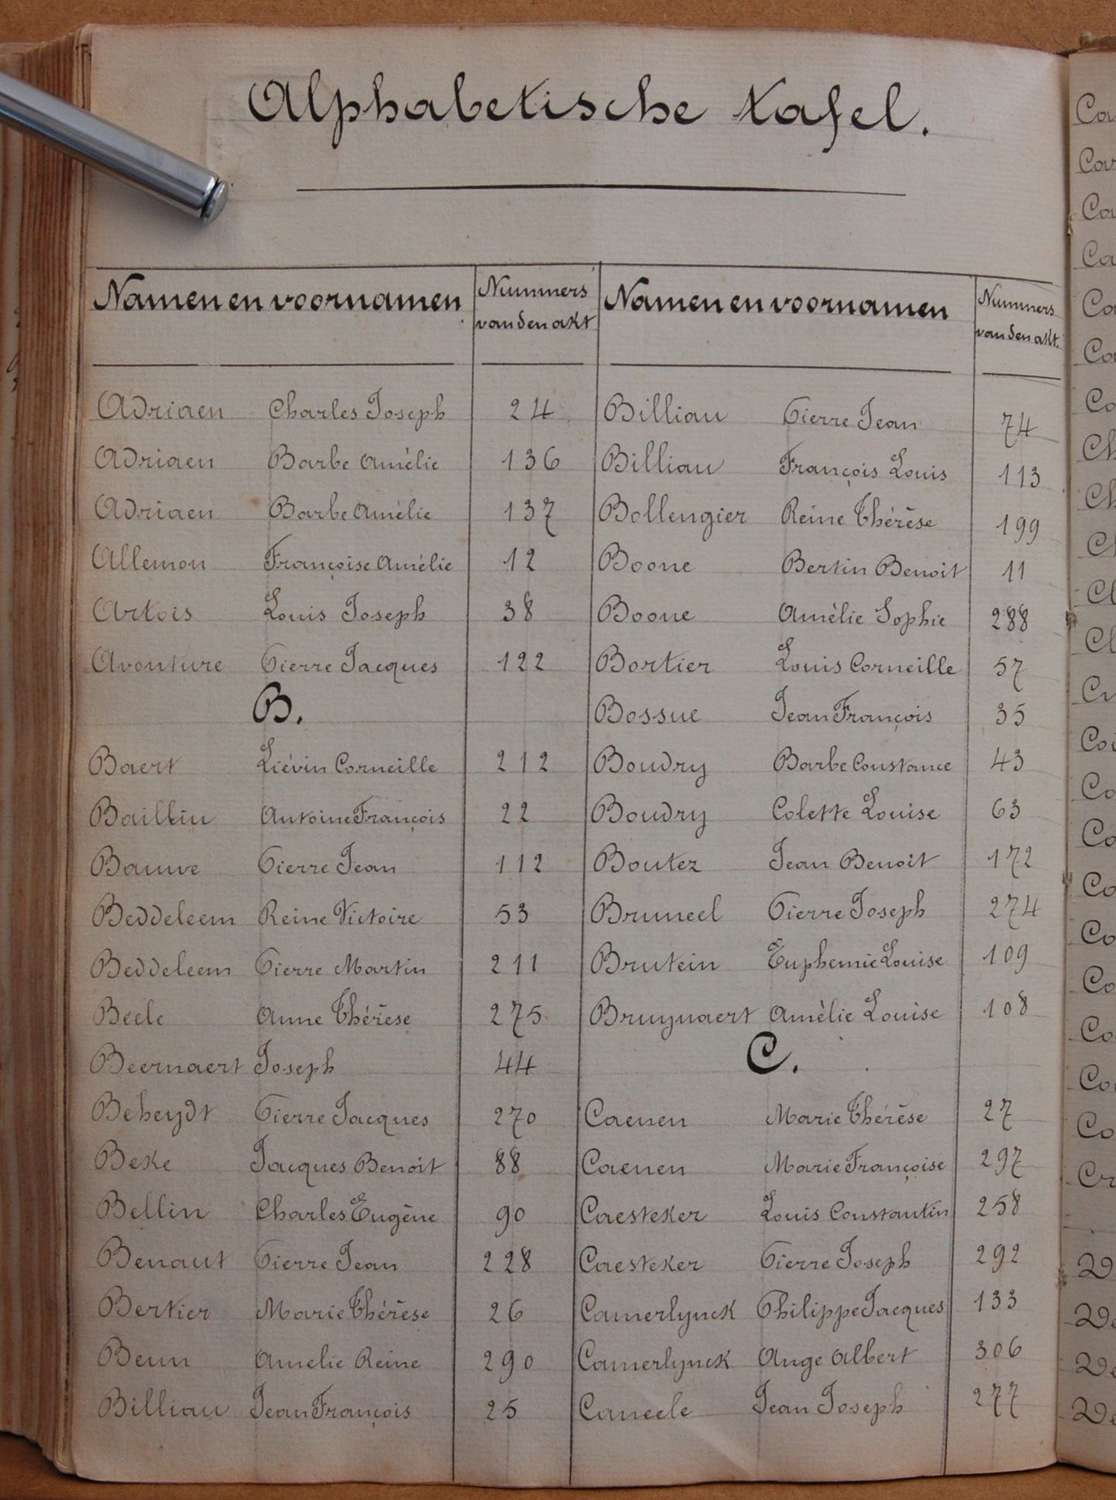 Alphabetische tafel.
Namen en voornamen
Nummers
van den akt
Adriaen Charles Joseph 24
Adriaen Barbe Amélie 136
Adriaen Barbe Amélie 137
Allemon Françoise Amélie 12
Artois Louis Joseph 38
Avonture Pierre Jacques 122
B.
Baert Liévin Corneille 212
Bailliu Antoine François 22
Bauwe Pierre Jean 112
Beddeleem Reine Victoire 53
Beddeleem Pierre Martin 211
Beele Anne Thérèse 275
Beernaert Joseph 44
Beheydt Pierre Jacques 270
Beke Jacques Benoit 88
Bellin Charles Eugène 90
Benaut Pierre Jean 228
Bertier Marie Thérèse 26
Beun Amelie Reine 290
Billiau Jean François 25
Namen en voornamen
Nummers
van den akt.
Billiau Pierre Jean 74
Billiau François Louis 113
Bollengier Reine Thérèse 199
Boone Bertin Benoit 11
Boone Amélie Sophie 288
Bortier Louis Corneille 57
Bossue Jean François 35
Boudry Barbe Constance 43
Boudry Colette Louise 63
Boutez Jean Benoit 172
Bruneel Pierre Joseph 274
Brutein Euphemie Louise 109
Bruynaert Amélie Louise 108
C.
Caenen Marie Thérèse 27
Caenen Marie Françoise 297
Caesteker Louis Constantin 258
Caesteker Pierre Joseph 292
Camerlynck Philippe Jacques 133
Camerlynck Ange Albert 306
Caneele Jean Joseph 277